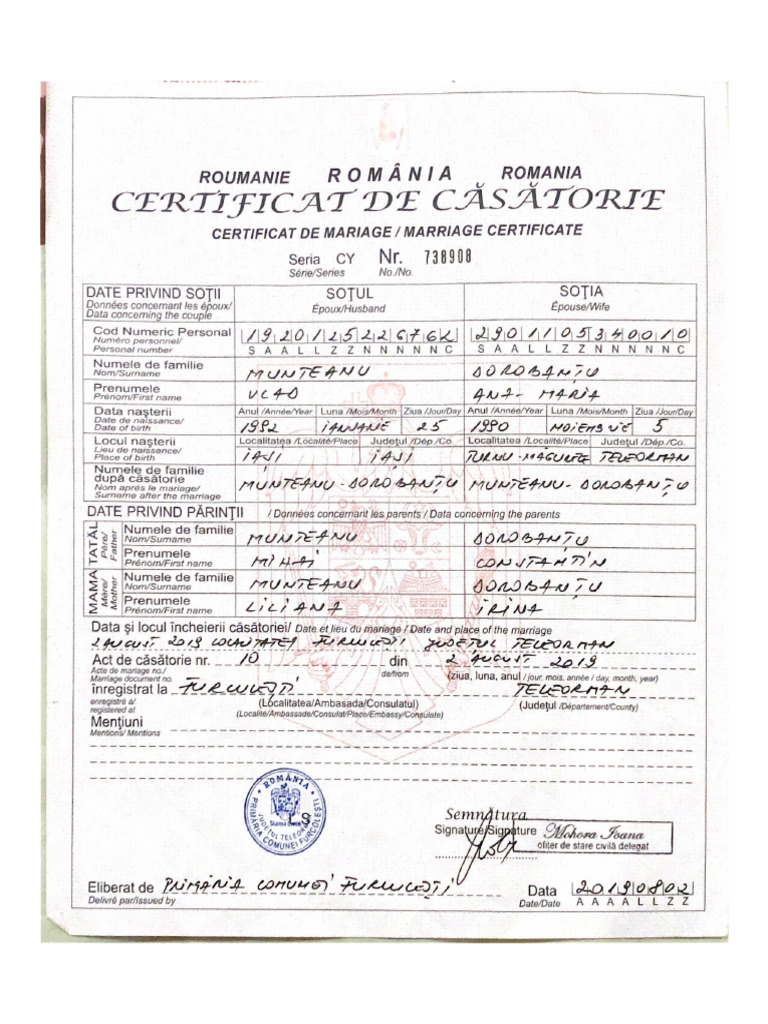 ROUMANIE ROMÂNIA ROMANIA
CERTIFICAT DE CĂSĂTORIE
CERTIFICAT DE MARIAGE / MARRIAGE CERTIFICATE
Seria CY Nr. 738908
Série/Series No./No.
DATE PRIVIND SOȚII SOȚUL SOȚIA
Données concernant les époux/ Époux/Husband Épouse/Wife
Data concerning the couple
Cod Numeric Personal 1920125226762 2901105340010
Numéro personnel/
Personal number S A A L L Z Z N N N N N C S A A L L Z Z N N N N N C
Numele de familie MUNTEANU DOROBANȚU
Nom/Surname
Prenumele VLAD ANA-MARIA
Prénom/First name
Data nașterii Anul /Année/Year Luna /Mois/Month Ziua /Jour/Day Anul /Année/Year Luna /Mois/Month Ziua /Jour/Day
Date de naissance/
Date of birth 1992 IANUARIE 25 1990 NOIEMBRIE 5
Locul nașterii Localitatea /Localité/Place Județul /Dép./Co. Localitatea /Localité/Place Județul /Dép./Co.
Lieu de naissance/
Place of birth IAȘI IAȘI TURNU-MĂGURELE TELEORMAN
Numele de familie
după căsătorie MUNTEANU-DOROBANȚU MUNTEANU-DOROBANȚU
Nom après le mariage/
Surname after the marriage
DATE PRIVIND PĂRINȚII / Données concernant les parents / Data concerning the parents
TATĂL
Père/
Father
Numele de familie MUNTEANU DOROBANȚU
Nom/Surname
Prenumele MIHAI CONSTANTIN
Prénom/First name
MAMA
Mère/
Mother
Numele de familie MUNTEANU DOROBANȚU
Nom/Surname
Prenumele LILIANA IRINA
Prénom/First name
Data și locul încheierii căsătoriei/ Date et lieu du mariage / Date and place of the marriage
2 AUGUST 2019 LOCALITATEA FURCULEȘTI JUDEȚUL TELEORMAN
Act de căsătorie nr. 10 din 2 AUGUST 2019
Acte de mariage no./
Marriage document no. de/from (ziua, luna, anul / jour, mois, année / day, month, year)
înregistrat la FURCULEȘTI TELEORMAN
enregistré à/
registered at (Localitatea/Ambasada/Consulatul) (Județul /Département/County)
(Localité/Ambassade/Consulat/Place/Embassy/Consulate)
Mențiuni
Mentions/ Mentions
ROMÂNIA
JUDEȚUL TELEORMAN
PRIMĂRIA COMUNEI FURCULEȘTI
Starea civilă
Semnătura
Signature/Signature
Mohora Ioana
ofițer de stare civilă delegat
Eliberat de PRIMĂRIA COMUNEI FURCULEȘTI Data 20190802
Délivré par/Issued by Date/Date A A A A L L Z Z